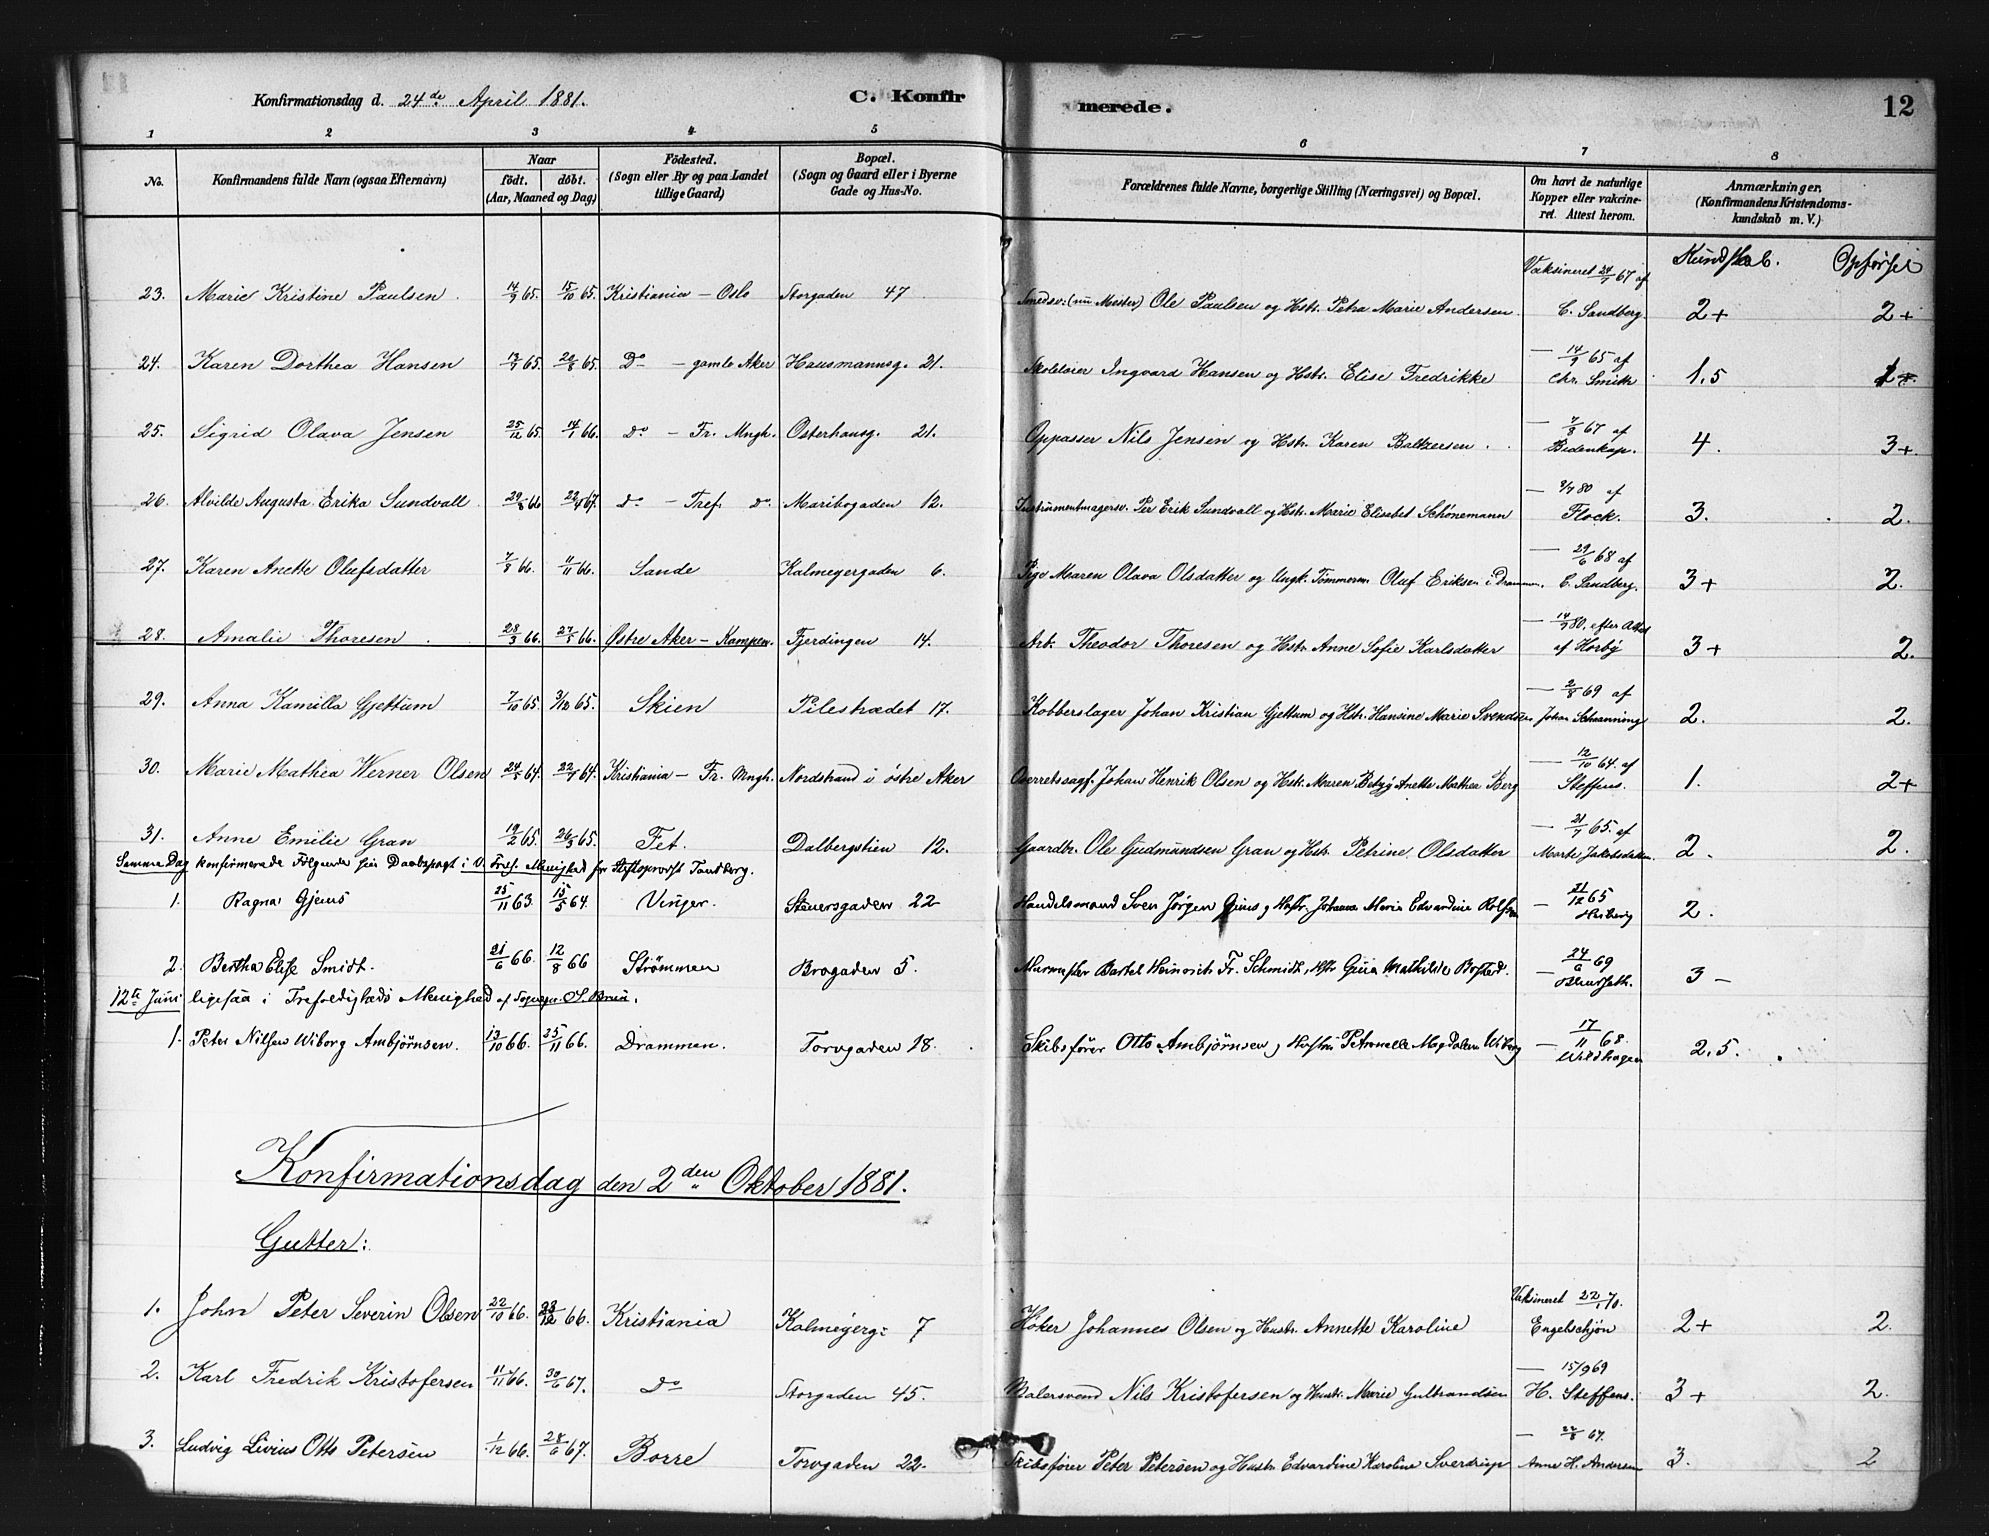 Konfirmationsdag d. 24de April 1881. C. Konfirmerede. 12
1 2 3 4 5 6 7 8
No. Konfirmandens fulde Navn (ogsaa Efternavn) Naar födt. döbt. (Aar, Maaned og Dag) Födested. (Sogn eller By og paa Landet tillige Gaard) Bopæl. (Sogn og Gaard eller i Byerne Gade og Hus-No. Forældrenes fulde Navne, borgerlige Stilling (Næringsvei) og Bopæl. Om havt de naturlige Kopper eller vakcineret. Attest herom. Anmærkninger. (Konfirmandens Kristendomskundskab m. V.)
Kundskab. Opførsel
23. Marie Kristine Paulsen 14/9 65. 15/10 65. Kristiania - Oslo Storgaden 47 Smedsv. (nu Mester) Ole Paulsen og Hstr. Petra Marie Andersen. Vaksineret 24/7 67 af C. Sandberg. 2+ 2+
24. Karen Dorthea Hansen 13/7 65. 20/8 65. Do - gamle Aker Hausmannsg. 21. Ingvard Hansen og Hstr. Elise Fredrikke - 14/9 65 af Chr. Smith 1,5
25. Sigrid Olava Jensen 25/12 65. 14/1 66. Do - Fr. Mngh. Osterhausg. 21. Oppasser Nils Jensen og Hstr. Karen Baltzersen. - 7/8 67 af Bidenkap. 4. 3+
26. Alvilde Augusta Erika Sundvall 29/8 66 22/4 67. Do - Tref. Do. Maribogaden 12. Instrumentmagersv. Per Erik Sundvall og Hstr. Marie Elisabet Schönemann - 9/7 80 af Flock. 3. 2.
27. Karen Anette Olufsdatter 7/8 66. 11/11 66. Sande Kalmeyergaden 6. Pige Maren Olava Olsdatter og Ungk. Tømmerm. Oluf Eriksen i Drammen. - 29/6 68 af C. Sandberg. 3+ 2.
28. Amalie Thoresen 28/3 66. 27/5 66. Østre Aker - Kampen. Fjerdingen 14. Arb. Theodor Thoresen og Hstr. Anne Sofie Karlsdatter - 14/9 80. efter Attest af Horby 3+ 2.
29. Anna Kamilla Gjettum 7/10 65. 3/12 65. Skien Pilestrædet 17. Kobberslager Johan Kristian Gjettum og Hstr. Hansine Marie Svendsen - 2/8 69 af Johan Schanning 2. 2.
30. Marie Mathea Werner Olsen 24/5 64. 22/7 64. Kristiania - Fr. Mngh. Nordstrand i østre Aker Overretssagf. Johan Henrik Olsen og Hstr. Maren Betzy Anette Mathea Berg - 12/10 64. af Steffens. 1. 2+
31. Anne Emilie Gran 19/2 65. 26/3 65. Fet. Dalbergstien 12. Gaardbr. Ole Gudmundsen Gran og Hstr. Petrine Olsdatter - 21/7 65. af Marte Jakobsdatter. 2. 2.
Samme Dag konfirmerede Følgende sin Daabspagt i V. Fref. Menighed for Stiftsprovst Tandberg.
1. Ragna Gjems 25/11 63. 15/5 64. Vinger. Steuersgaden 22 Handelsmand Sven Jørgen Gjems og Hstr. Johanne Marie Edvardine Rolfsen - 21/12 65 2.
2. Bertha Elise Smidt. 21/6 66. 12/8 66 Strømmen Brogaden 5. Murmester Bartel Heinrich Fr. Schmidt, Hstr. Gina Mathilde - 24/6 69 3 -
12te Juni ligesaa i Trefoldigheds Menighed af Sognepr. Bruun.
1. Peter Nilsen Wiborg Ambjørnsen. 13/10 66. 25/11 66. Drammen. Torvgaden 18. Skibsfører Otto Ambjørnsen, Hustru Petronelle Magdalena Wiborg - 17/11 68. Wildhagen 2,5.
Konfirmationsdag den 2den Oktober 1881.
Gutter:
1. John Peter Severin Olsen 22/10 66. 28/12 66. Kristiania Kalmeyerg: 7 Høker Johannes Olsen og Hustr. Annette Karoline Vaksineret 22/1 70. Engelschjøn 2+ 2.
2. Karl Fredrik Kristofersen 11/11 66. 30/6 67. Do Storgaden 45. Malersvend Nils Kristofersen og Hustr. Marie Gulbrandsen - 15/9 69 H. Steffens. 3+ 2.
3. Ludvig Livius Otto Petersen 1/12 66. 28/6 67. Borre Torvgaden 22. Skibsfører Peter Petersen og Hustr. Edvardine Karoline Sverdrup - 22/8 67. Anne H. Andersen 3. 2